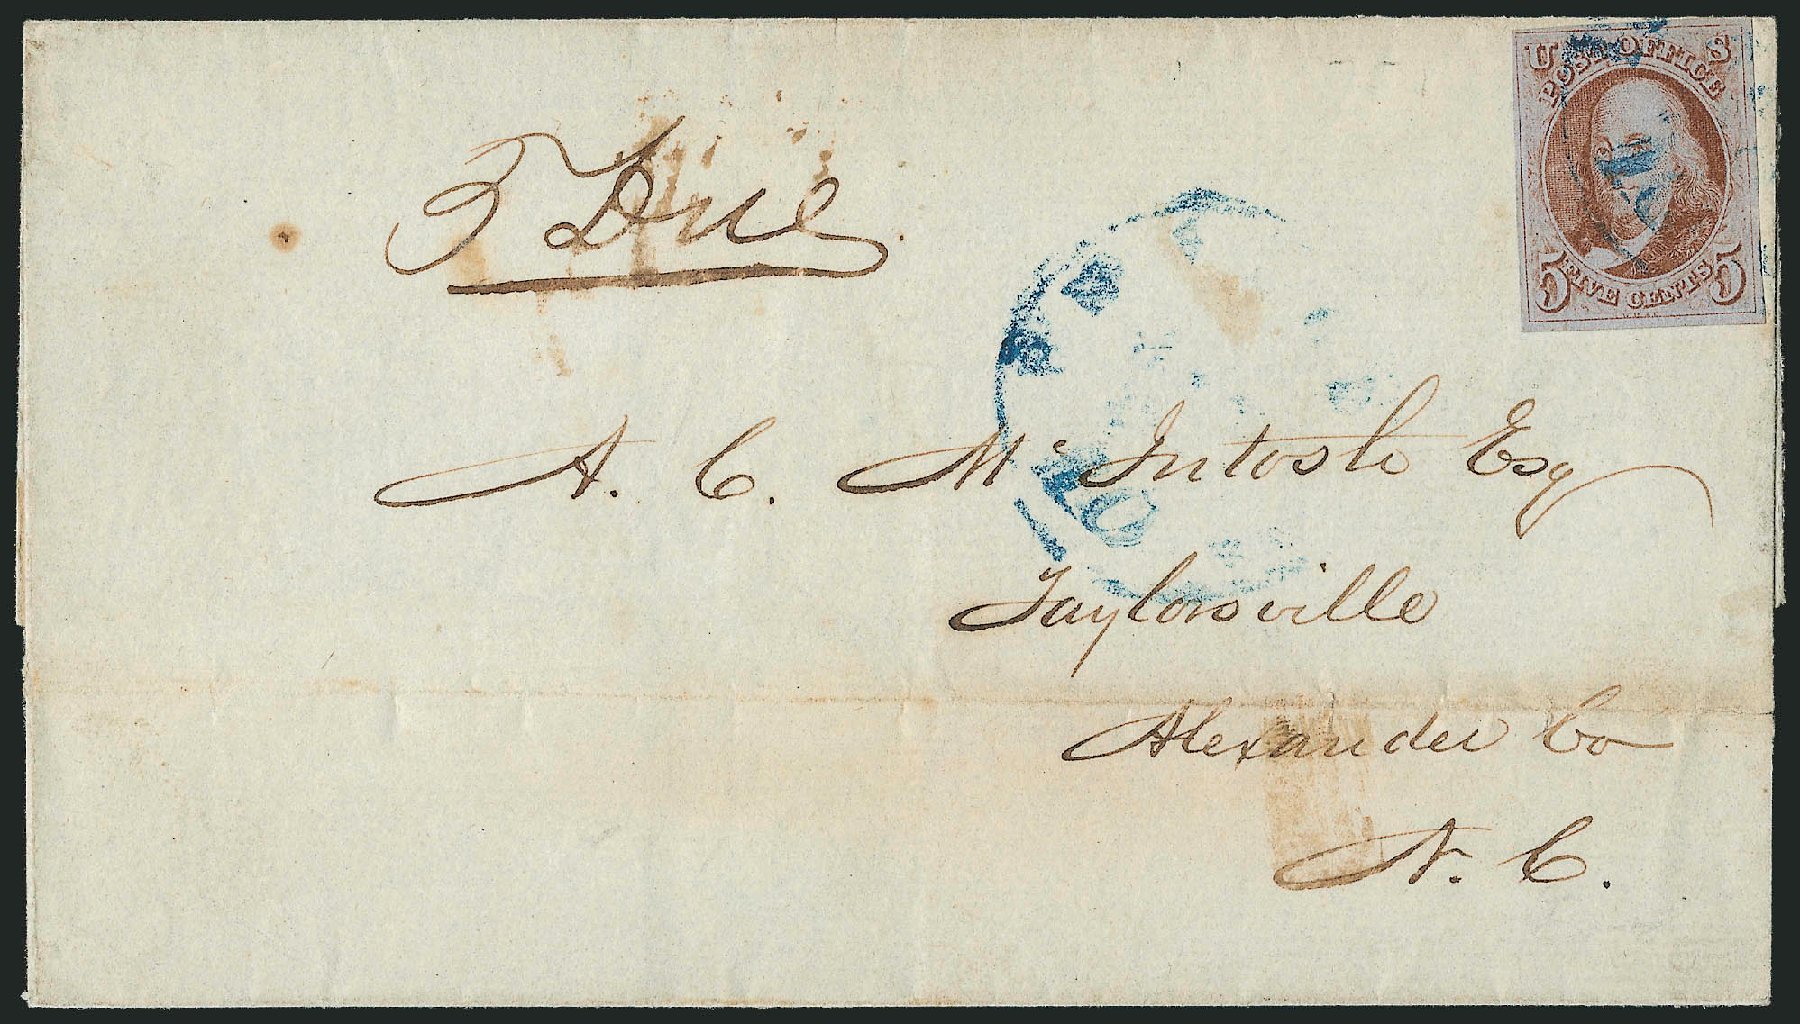 U S
POST OFFICE
FIVE CENTS
5 5
5 Due
10
A. C. Mc Intosh Esq
Taylorsville
Alexander Co
N. C.